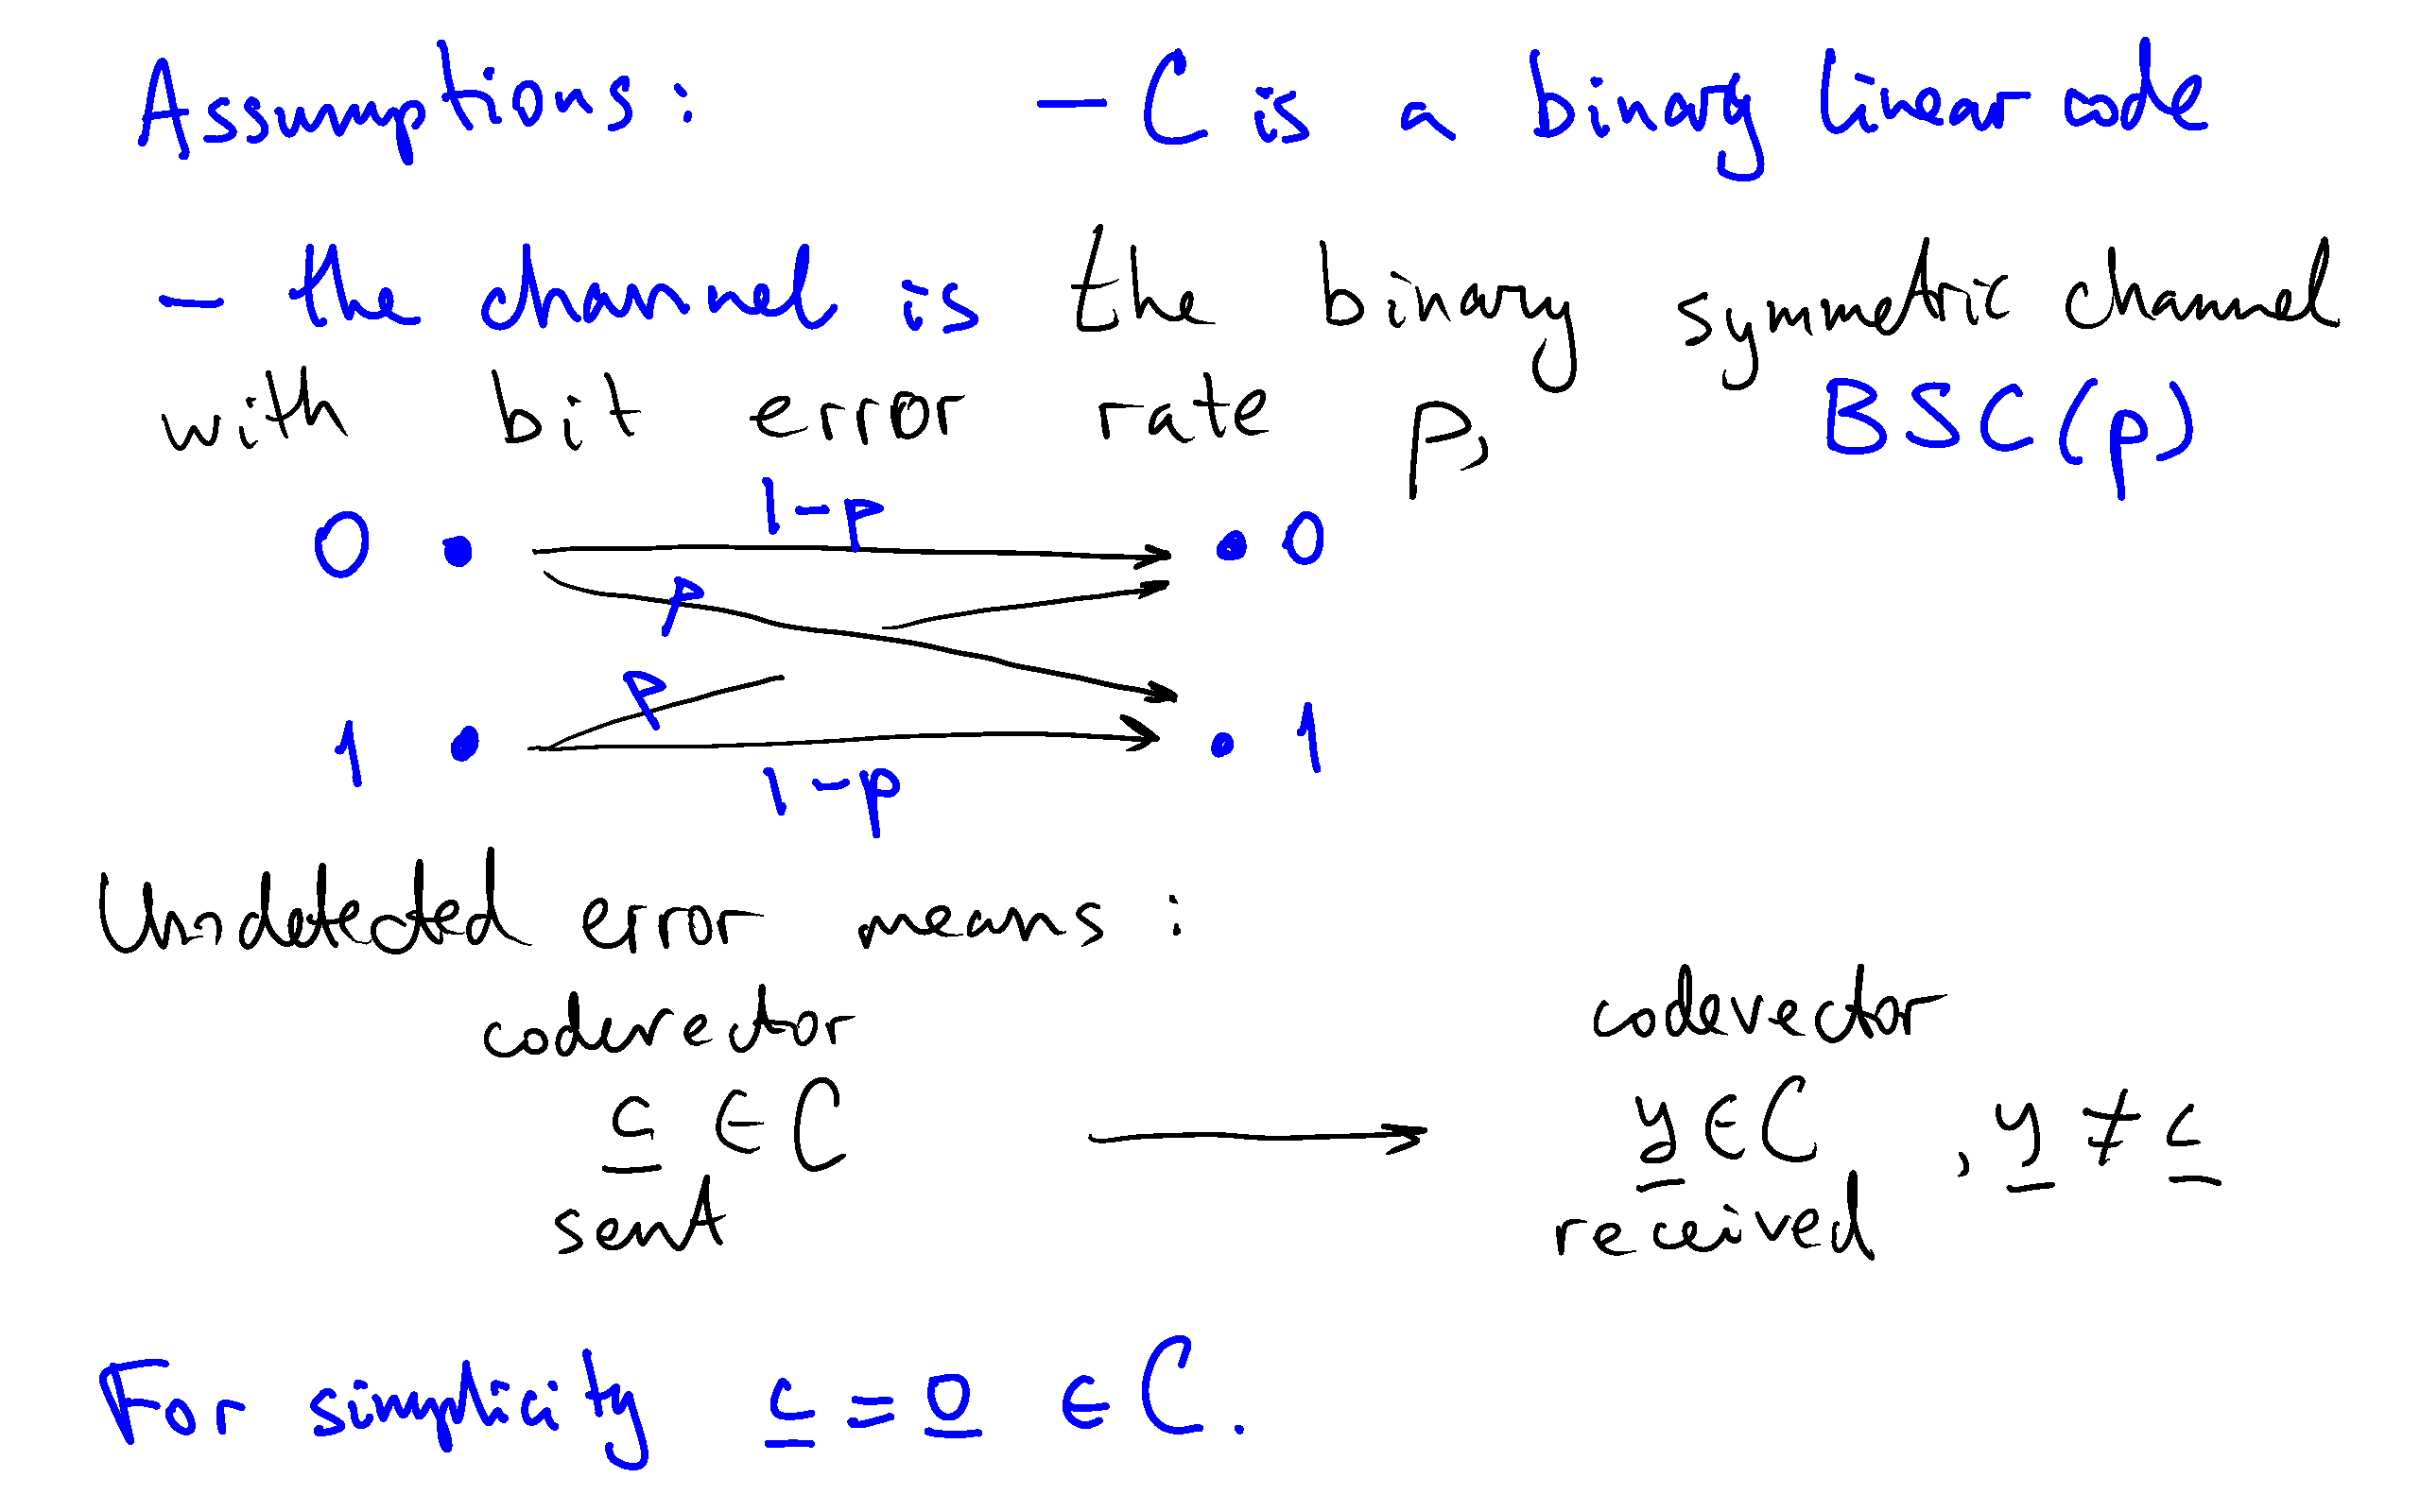 Assumptions: – C is a binary linear code
– the channel is the binary symmetric channel
with bit error rate p, BSC(p)
1-p
0 • • 0
p
p
1 • • 1
1-p
Undetected error means:
codevector codevector
c ∈ C y ∈ C , y ≠ c
sent received
For simplicity c = 0 ∈ C.